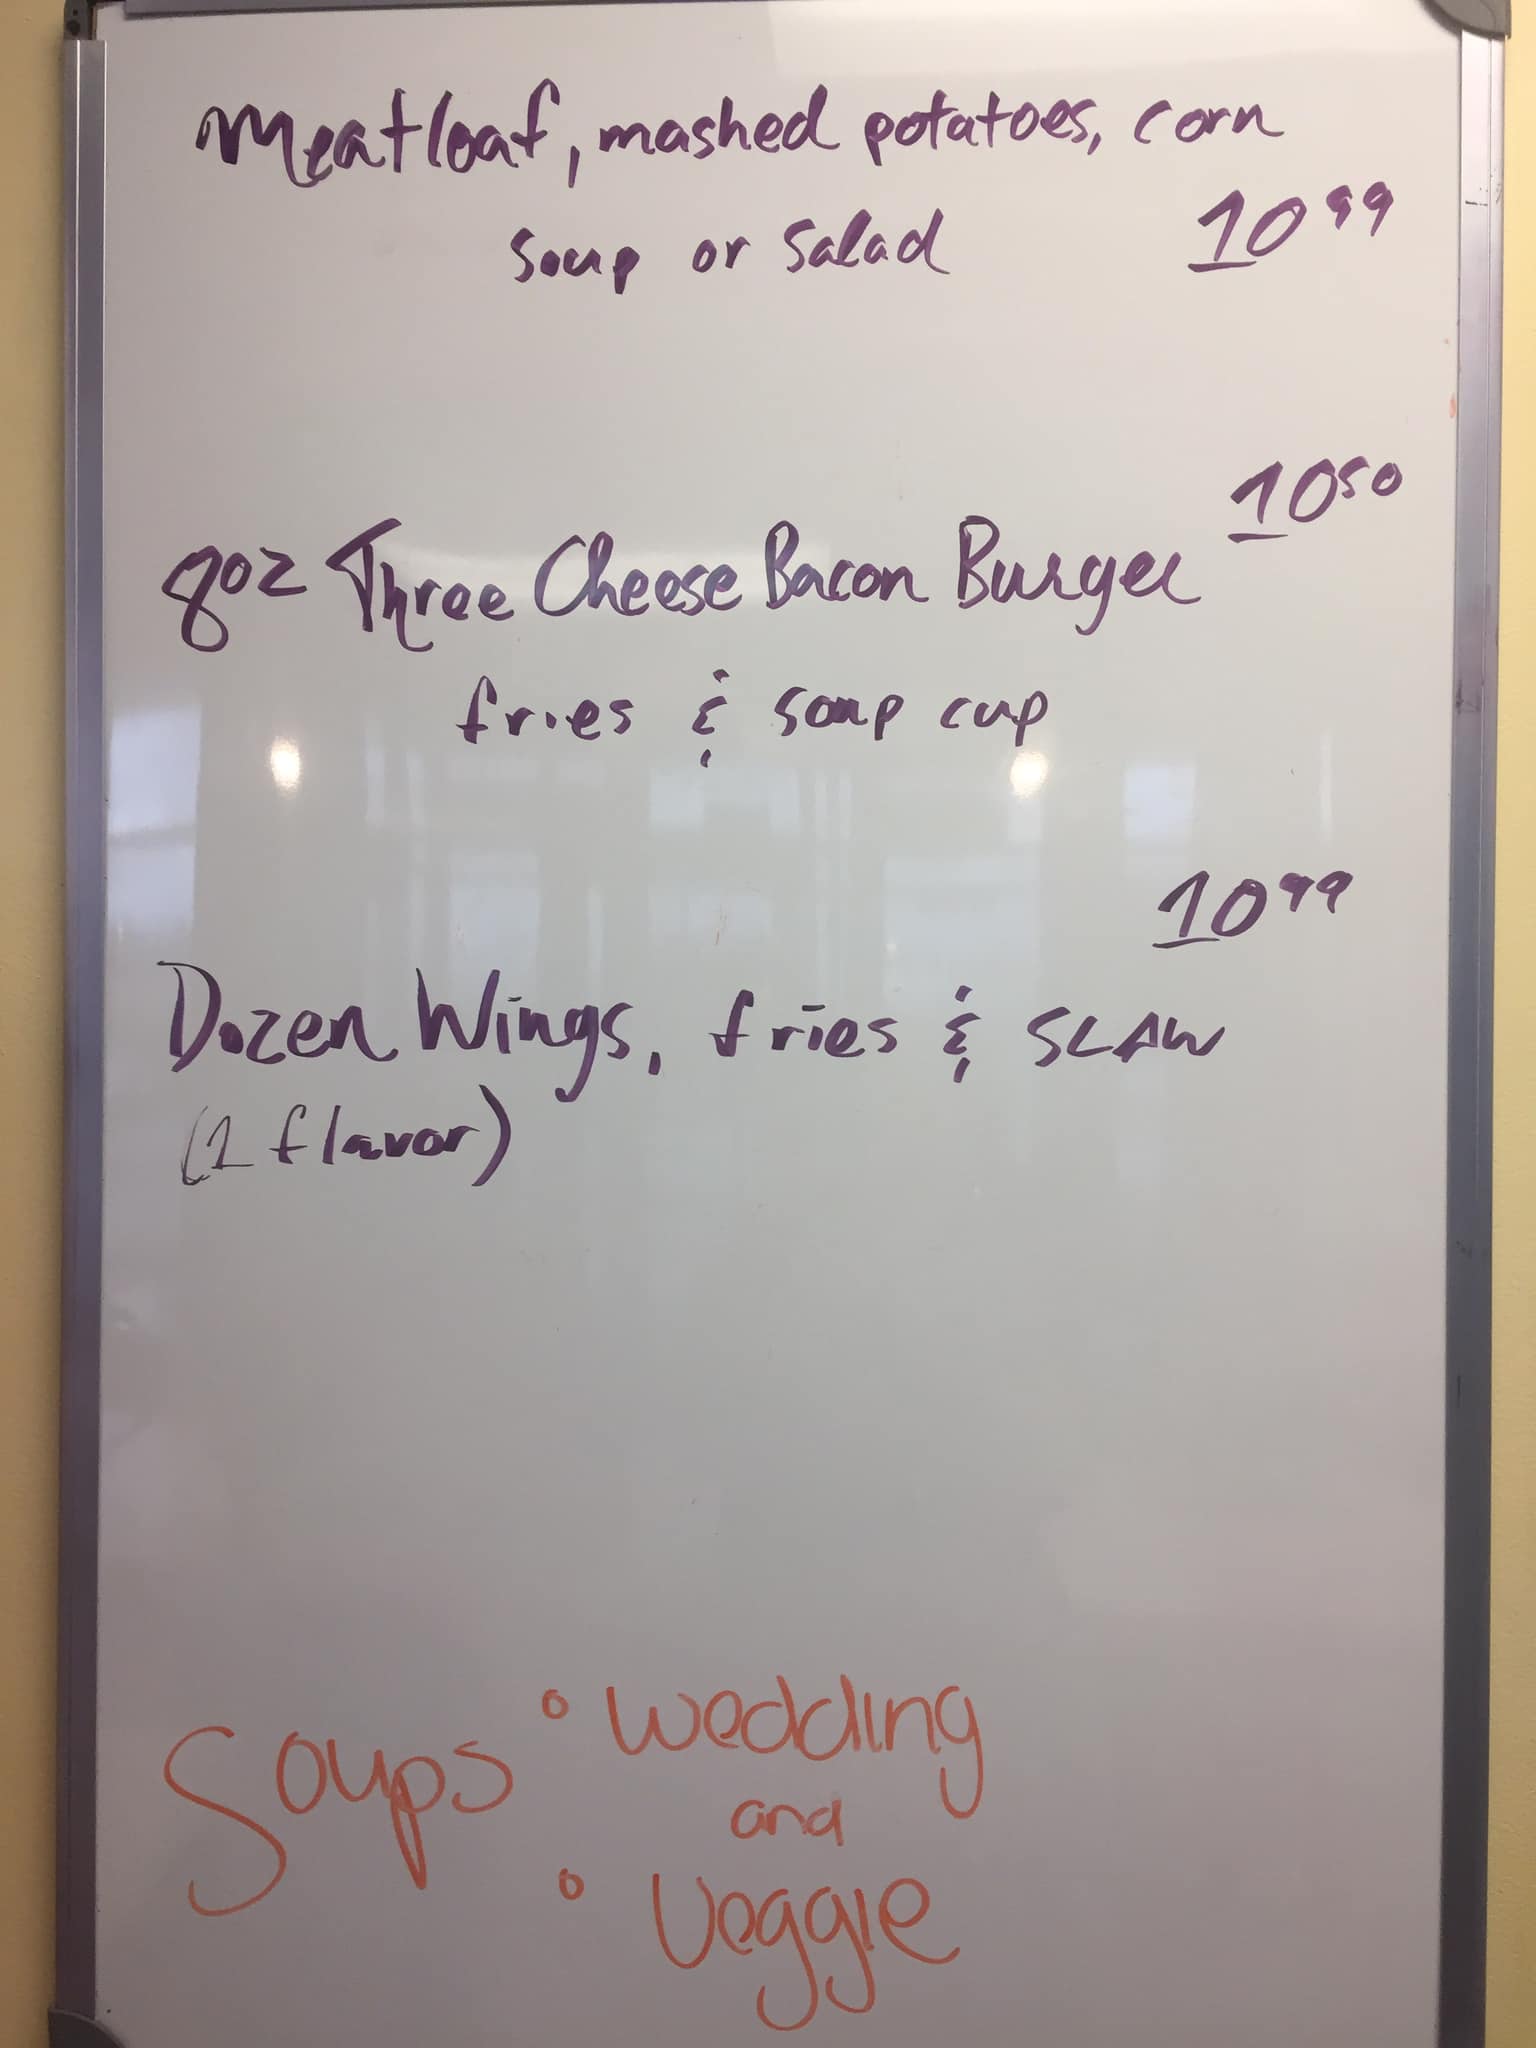 Meatloaf, mashed potatoes, corn
soup or salad 10 99
10 50
8oz Three Cheese Bacon Burger
fries & soup cup
10 99
Dozen Wings, fries & SLAW
(1 flavor)
Soups
• Wedding
and
• Veggie